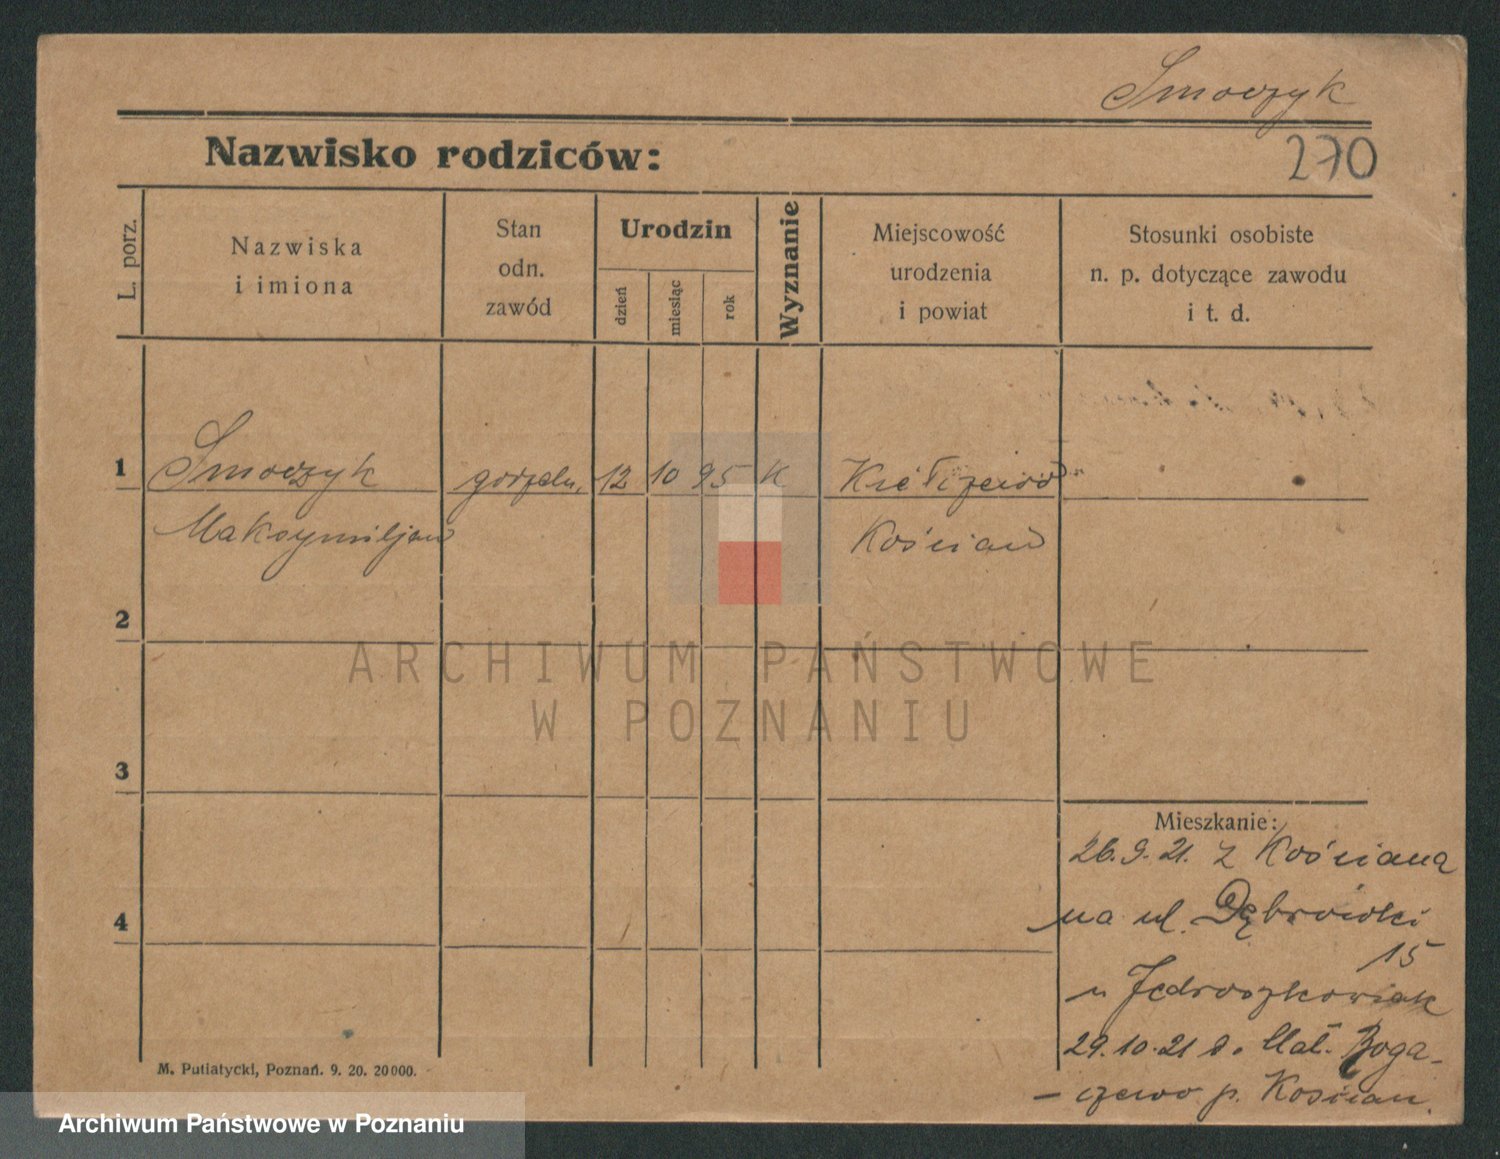 Smoczyk
Nazwisko rodziców:
270
L. porz.
Nazwiska
i imiona
Stan
odn.
zawód
Urodzin
dzień
miesiąc
rok
Wyznanie
Miejscowość
urodzenia
i powiat
Stosunki osobiste
n. p. dotyczące zawodu
i t. d.
1 Smoczyk gorzeln. 12 10 95 K Kiełczewo
Maksymiljan Kościan
2
ARCHIWUM PAŃSTWOWE
W POZNANIU
3
4
Mieszkanie:
26.9.21. z Kościana
na ul. Dąbrówki
15
u Jędroszkowiak
29.10.21 d. Boga-
czewo p. Kościan.
M. Putiatycki, Poznań. 9. 20. 20000.
Archiwum Państwowe w Poznaniu